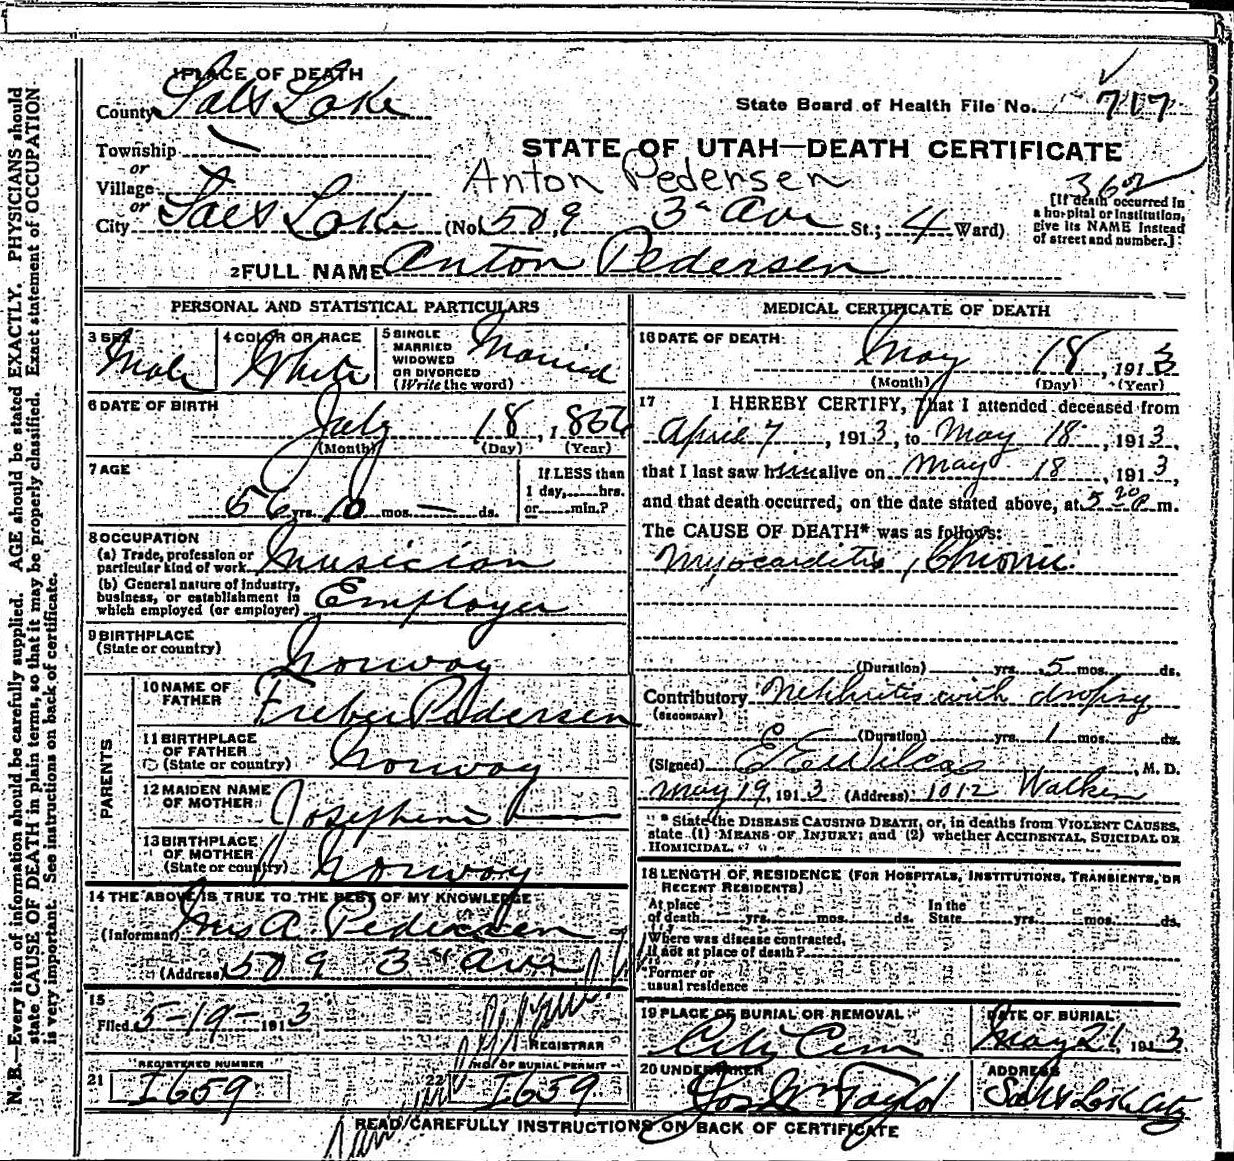 1 PLACE OF DEATH
County Salt Lake
State Board of Health File No. 717
Township —
or
STATE OF UTAH—DEATH CERTIFICATE
Village
Anton Pedersen
or
City Salt Lake (No. 509 3d Ave St.; 4 Ward)
[If death occurred in
a hospital or institution,
give its NAME instead
of street and number.]
2 FULL NAME Anton Pedersen
PERSONAL AND STATISTICAL PARTICULARS
3 SEX Male
4 COLOR OR RACE White
5 SINGLE
MARRIED
WIDOWED
OR DIVORCED
(Write the word) Married
6 DATE OF BIRTH July 18, 1856
(Month) (Day) (Year)
7 AGE
56 yrs. 10 mos. — ds.
If LESS than
1 day, hrs.
or min.?
8 OCCUPATION
(a) Trade, profession or
particular kind of work Musician
(b) General nature of industry,
business, or establishment in
which employed (or employer) Employer
9 BIRTHPLACE
(State or country) Norway
PARENTS
10 NAME OF
FATHER Pedersen
11 BIRTHPLACE
OF FATHER
(State or country) Norway
12 MAIDEN NAME
OF MOTHER Josephine —
13 BIRTHPLACE
OF MOTHER
(State or country) Norway
14 THE ABOVE IS TRUE TO THE BEST OF MY KNOWLEDGE
(Informant) Mrs A. Pedersen
(Address) 509 3rd Ave
15
Filed 5-19- 1913
REGISTRAR
REGISTERED NUMBER
21 I659
NO. OF BURIAL PERMIT
22 I659
MEDICAL CERTIFICATE OF DEATH
16 DATE OF DEATH May 18, 1913
(Month) (Day) (Year)
17 I HEREBY CERTIFY, That I attended deceased from
April 7, 1913, to May 18, 1913,
that I last saw him alive on May 18, 1913,
and that death occurred, on the date stated above, at 5 20 P m.
The CAUSE OF DEATH* was as follows:
Myocarditis, Chronic
(Duration) yrs. 5 mos. ds.
Contributory Nephritis with dropsy
(SECONDARY)
(Duration) yrs. 1 mos. ds.
(Signed) E E Wilcox, M. D.
May 19, 1913 (Address) 1012 Walker
* State the DISEASE CAUSING DEATH, or, in deaths from VIOLENT CAUSES,
state (1) MEANS OF INJURY; and (2) whether ACCIDENTAL, SUICIDAL OR
HOMICIDAL.
18 LENGTH OF RESIDENCE (FOR HOSPITALS, INSTITUTIONS, TRANSIENTS, OR
RECENT RESIDENTS)
At place
of death yrs. mos. ds.
In the
State yrs. mos. ds.
Where was disease contracted,
If not at place of death?
Former or
usual residence
19 PLACE OF BURIAL OR REMOVAL
City Cem
DATE OF BURIAL
May 21, 1913
20 UNDERTAKER
Jos Wm Taylor
ADDRESS
Salt Lake City
READ CAREFULLY INSTRUCTIONS ON BACK OF CERTIFICATE
N. B.—Every item of information should be carefully supplied. AGE should be stated EXACTLY. PHYSICIANS should
state CAUSE OF DEATH in plain terms, so that it may be properly classified. Exact statement of OCCUPATION
is very important. See instructions on back of certificate.